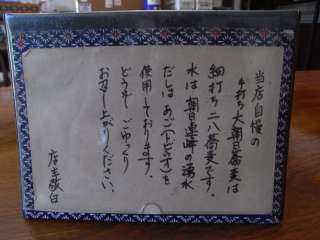 当店自慢の
手打ち大朝日蕎麦は
細打ち二八蕎麦です。
水は朝日連峰の湧水
だしはあご(とびうお)を
使用しております。
どうぞ、ごゆっくり
お召し上がりください。
店主敬白